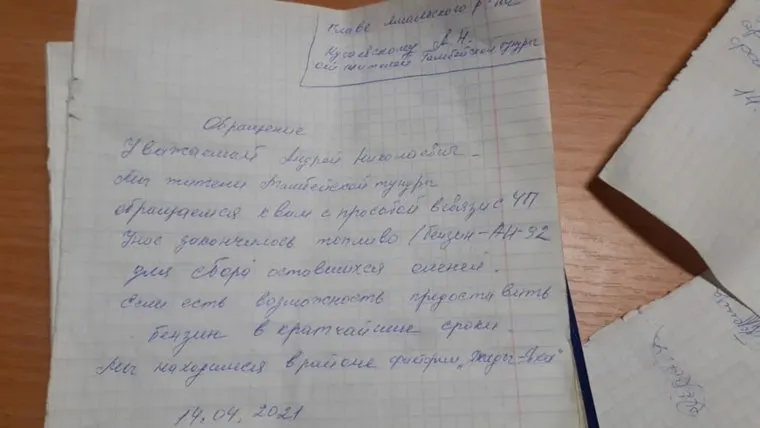 Главе Ямальского р-на
Кугаевскому А Н.
от жителей Тамбейской тундры
Обращение
Уважаемый Андрей Николаевич.
Мы жители Тамбейской тундры
обращаемся к вам с прозьбой всвязи с ЧП
Унас закончилось топливо /бензин-АИ-92
для сбора оставшихся оленей.
Если есть возможность предоставить
бензин в кратчайшие сроки.
Мы находимся врайоне фактории „
14.04.2021
14.